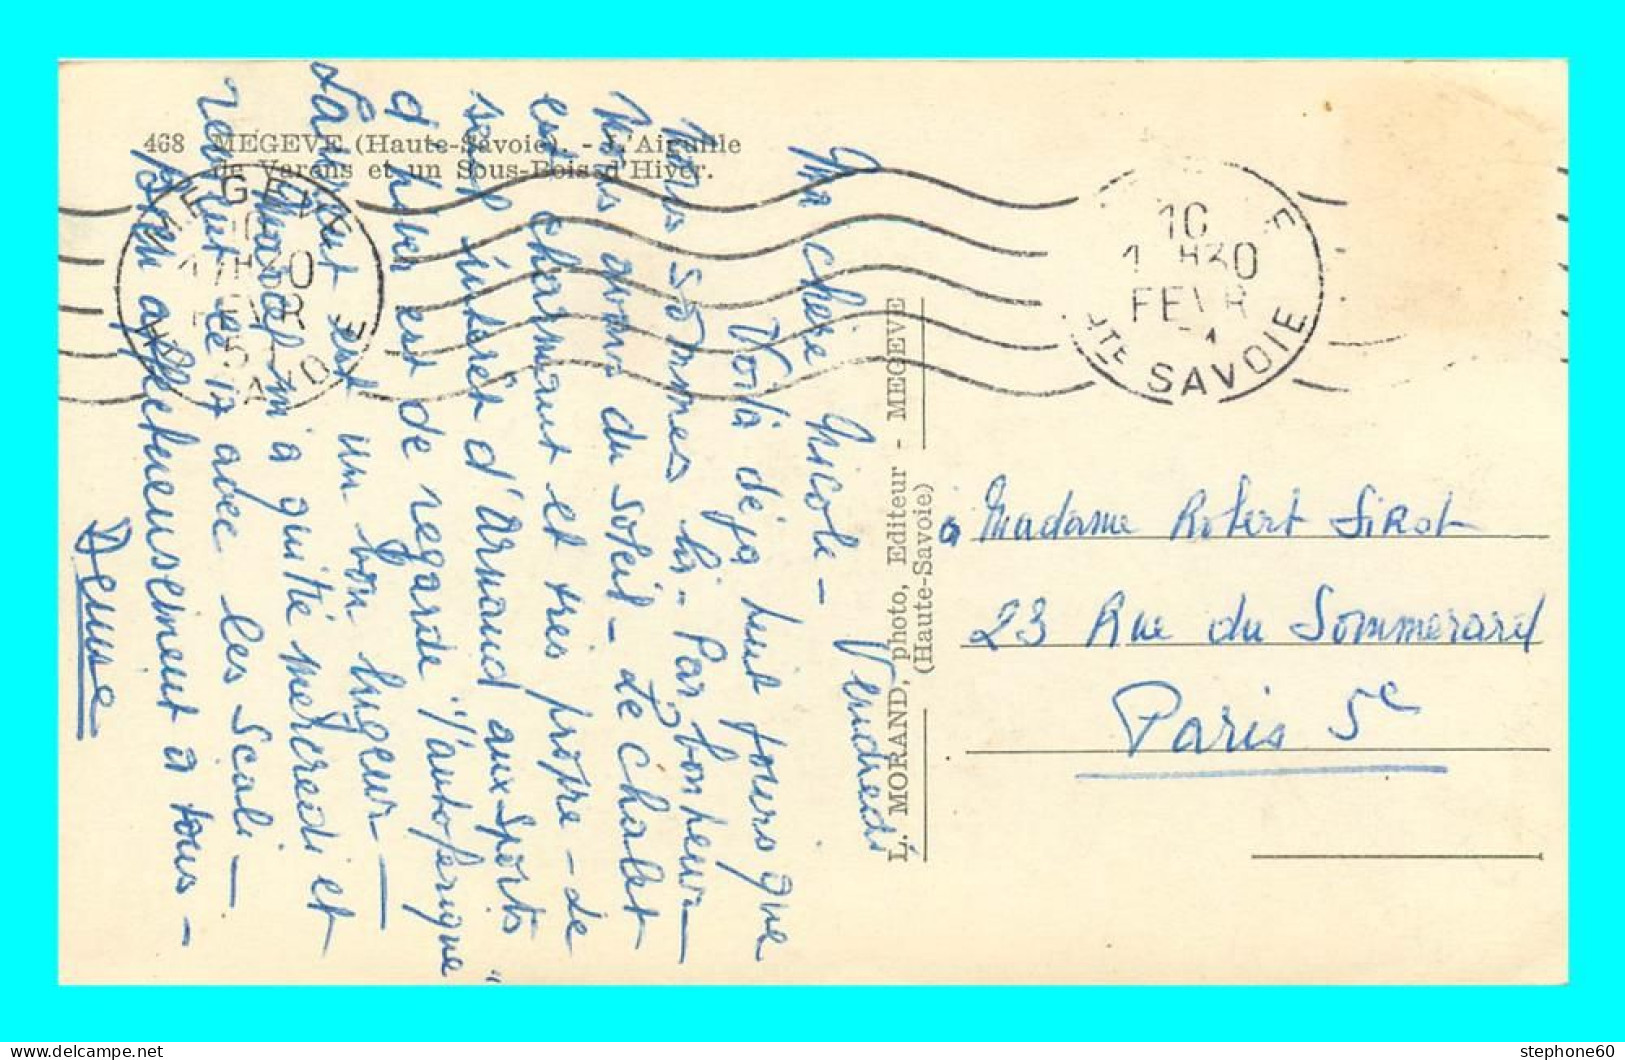 468 MEGEVE (Haute-Savoie). - L'Aiguille
de Varens et un Sous-Bois d'Hiver.
MEGEVE
17H30
FEVR
HTE SAVOIE
10
1 H30
FEVR
HTE SAVOIE
L. MORAND, photo, Editeur - MEGEVE
(Haute-Savoie)
Vendredi
Ma chère Nicole -
Voilà déjà huit jours que
nous sommes ici - Par bonheur
nous avons du soleil - Le chalet
est charmant et très propre - Le
seul intérêt d'Armand aux Sports
d'hiver est de regarder "l'autoferique"
Laurent est un bon lugeur -
Marcel m'a quitté mercredi et
revient le 17 avec les Scali -
Bien affectueusement à tous -
Denise
à Madame Robert Sirot
23 Rue du Sommerard
Paris 5e
stephone60